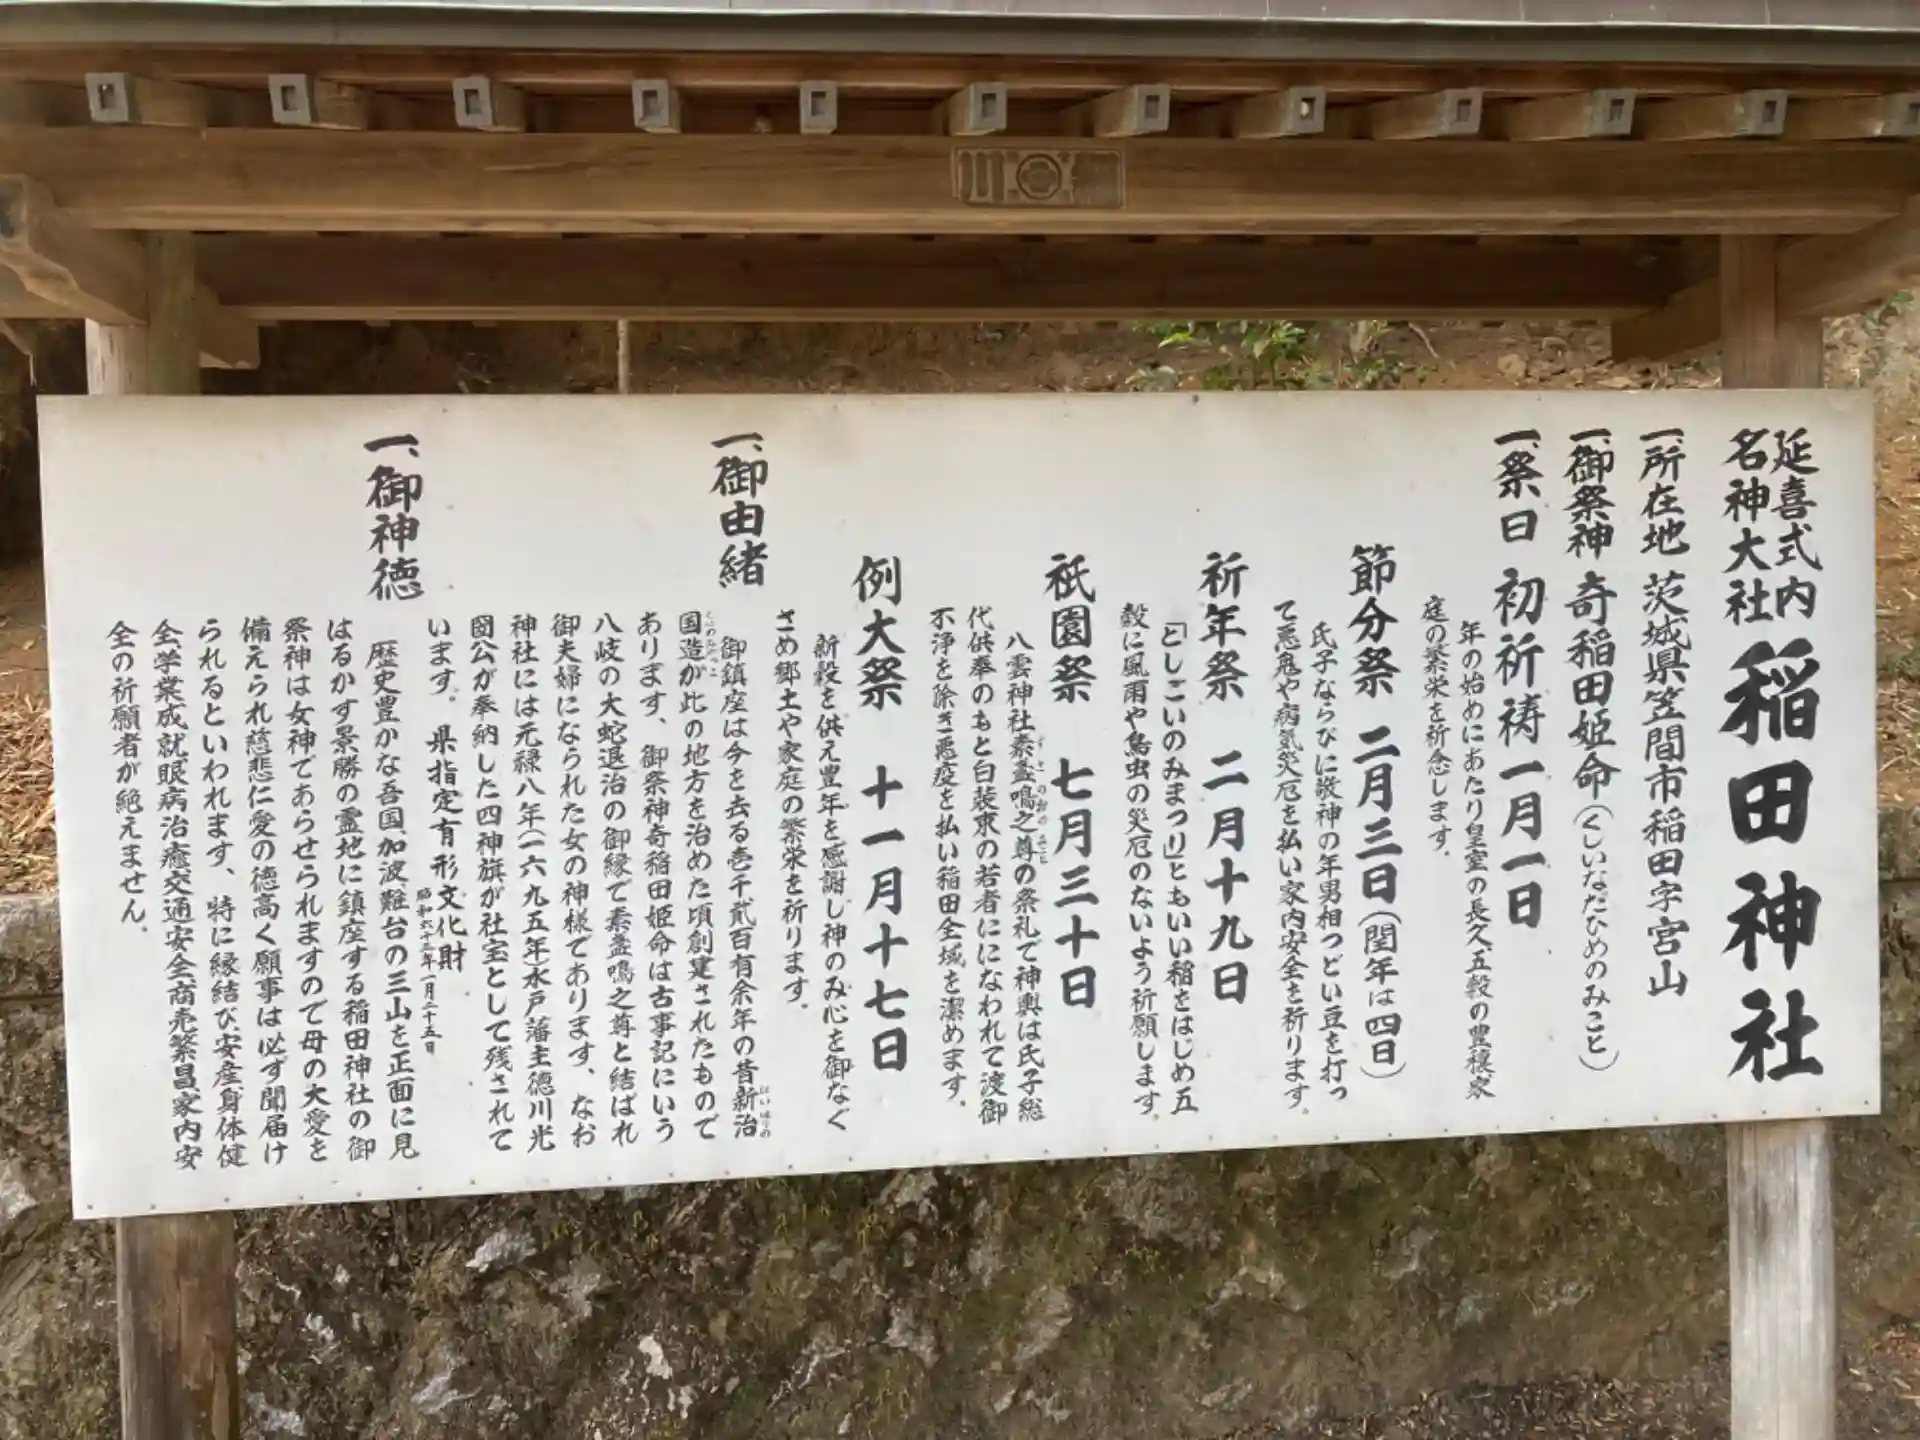 延喜式内
名神大社
稲田神社
一、所在地 茨城県笠間市稲田字宮山
一、御祭神 奇稲田姫命(くしいなだひめのみこと)
一、祭日 初祈祷 一月一日
年の始めにあたり皇室の長久、五穀の豊穣家
庭の繁栄を祈念します。
節分祭 二月三日(閏年は四日)
氏子ならびに敬神の年男相つどい豆を打っ
て悪鬼や病気災厄を払い家内安全を祈ります。
祈年祭 二月十九日
「としごいのみまつり」ともいい稲をはじめ五
穀に風雨や鳥虫の災厄のないよう祈願します。
祇園祭 七月三十日
八雲神社素盞鳴之尊の祭礼で神輿は氏子総
代供奉のもと白装束の若者にになわれて渡御
不浄を除き悪疫を払い稲田全域を潔めます。
例大祭 十一月十七日
新穀を供え豊年を感謝し神のみ心を御なぐ
さめ郷土や家庭の繁栄を祈ります。
一、御由緒
御鎮座は今を去る壱千貮百有余年の昔新治
国造が此の地方を治めた頃創建されたもので
あります、御祭神奇稲田姫命は古事記にいう
八岐の大蛇退治の御縁で素盞鳴之尊と結ばれ
御夫婦になられた女の神様であります、なお
神社には元禄八年(一六九五年)水戸藩主徳川光
圀公が奉納した四神旗が社宝として残されて
います。県指定有形文化財
昭和六十三年一月二十五日
一、御神徳
歴史豊かな吾国、加波、難台の三山を正面に見
はるかす景勝の霊地に鎮座する稲田神社の御
祭神は女神であらせられますので母の大愛を
備えられ慈悲仁愛の徳高く願事は必ず聞届け
られるといわれます、特に縁結び、安産、身体健
全、学業成就、眼病治癒、交通安全、商売繁昌、家内安
全の祈願者が絶えません。